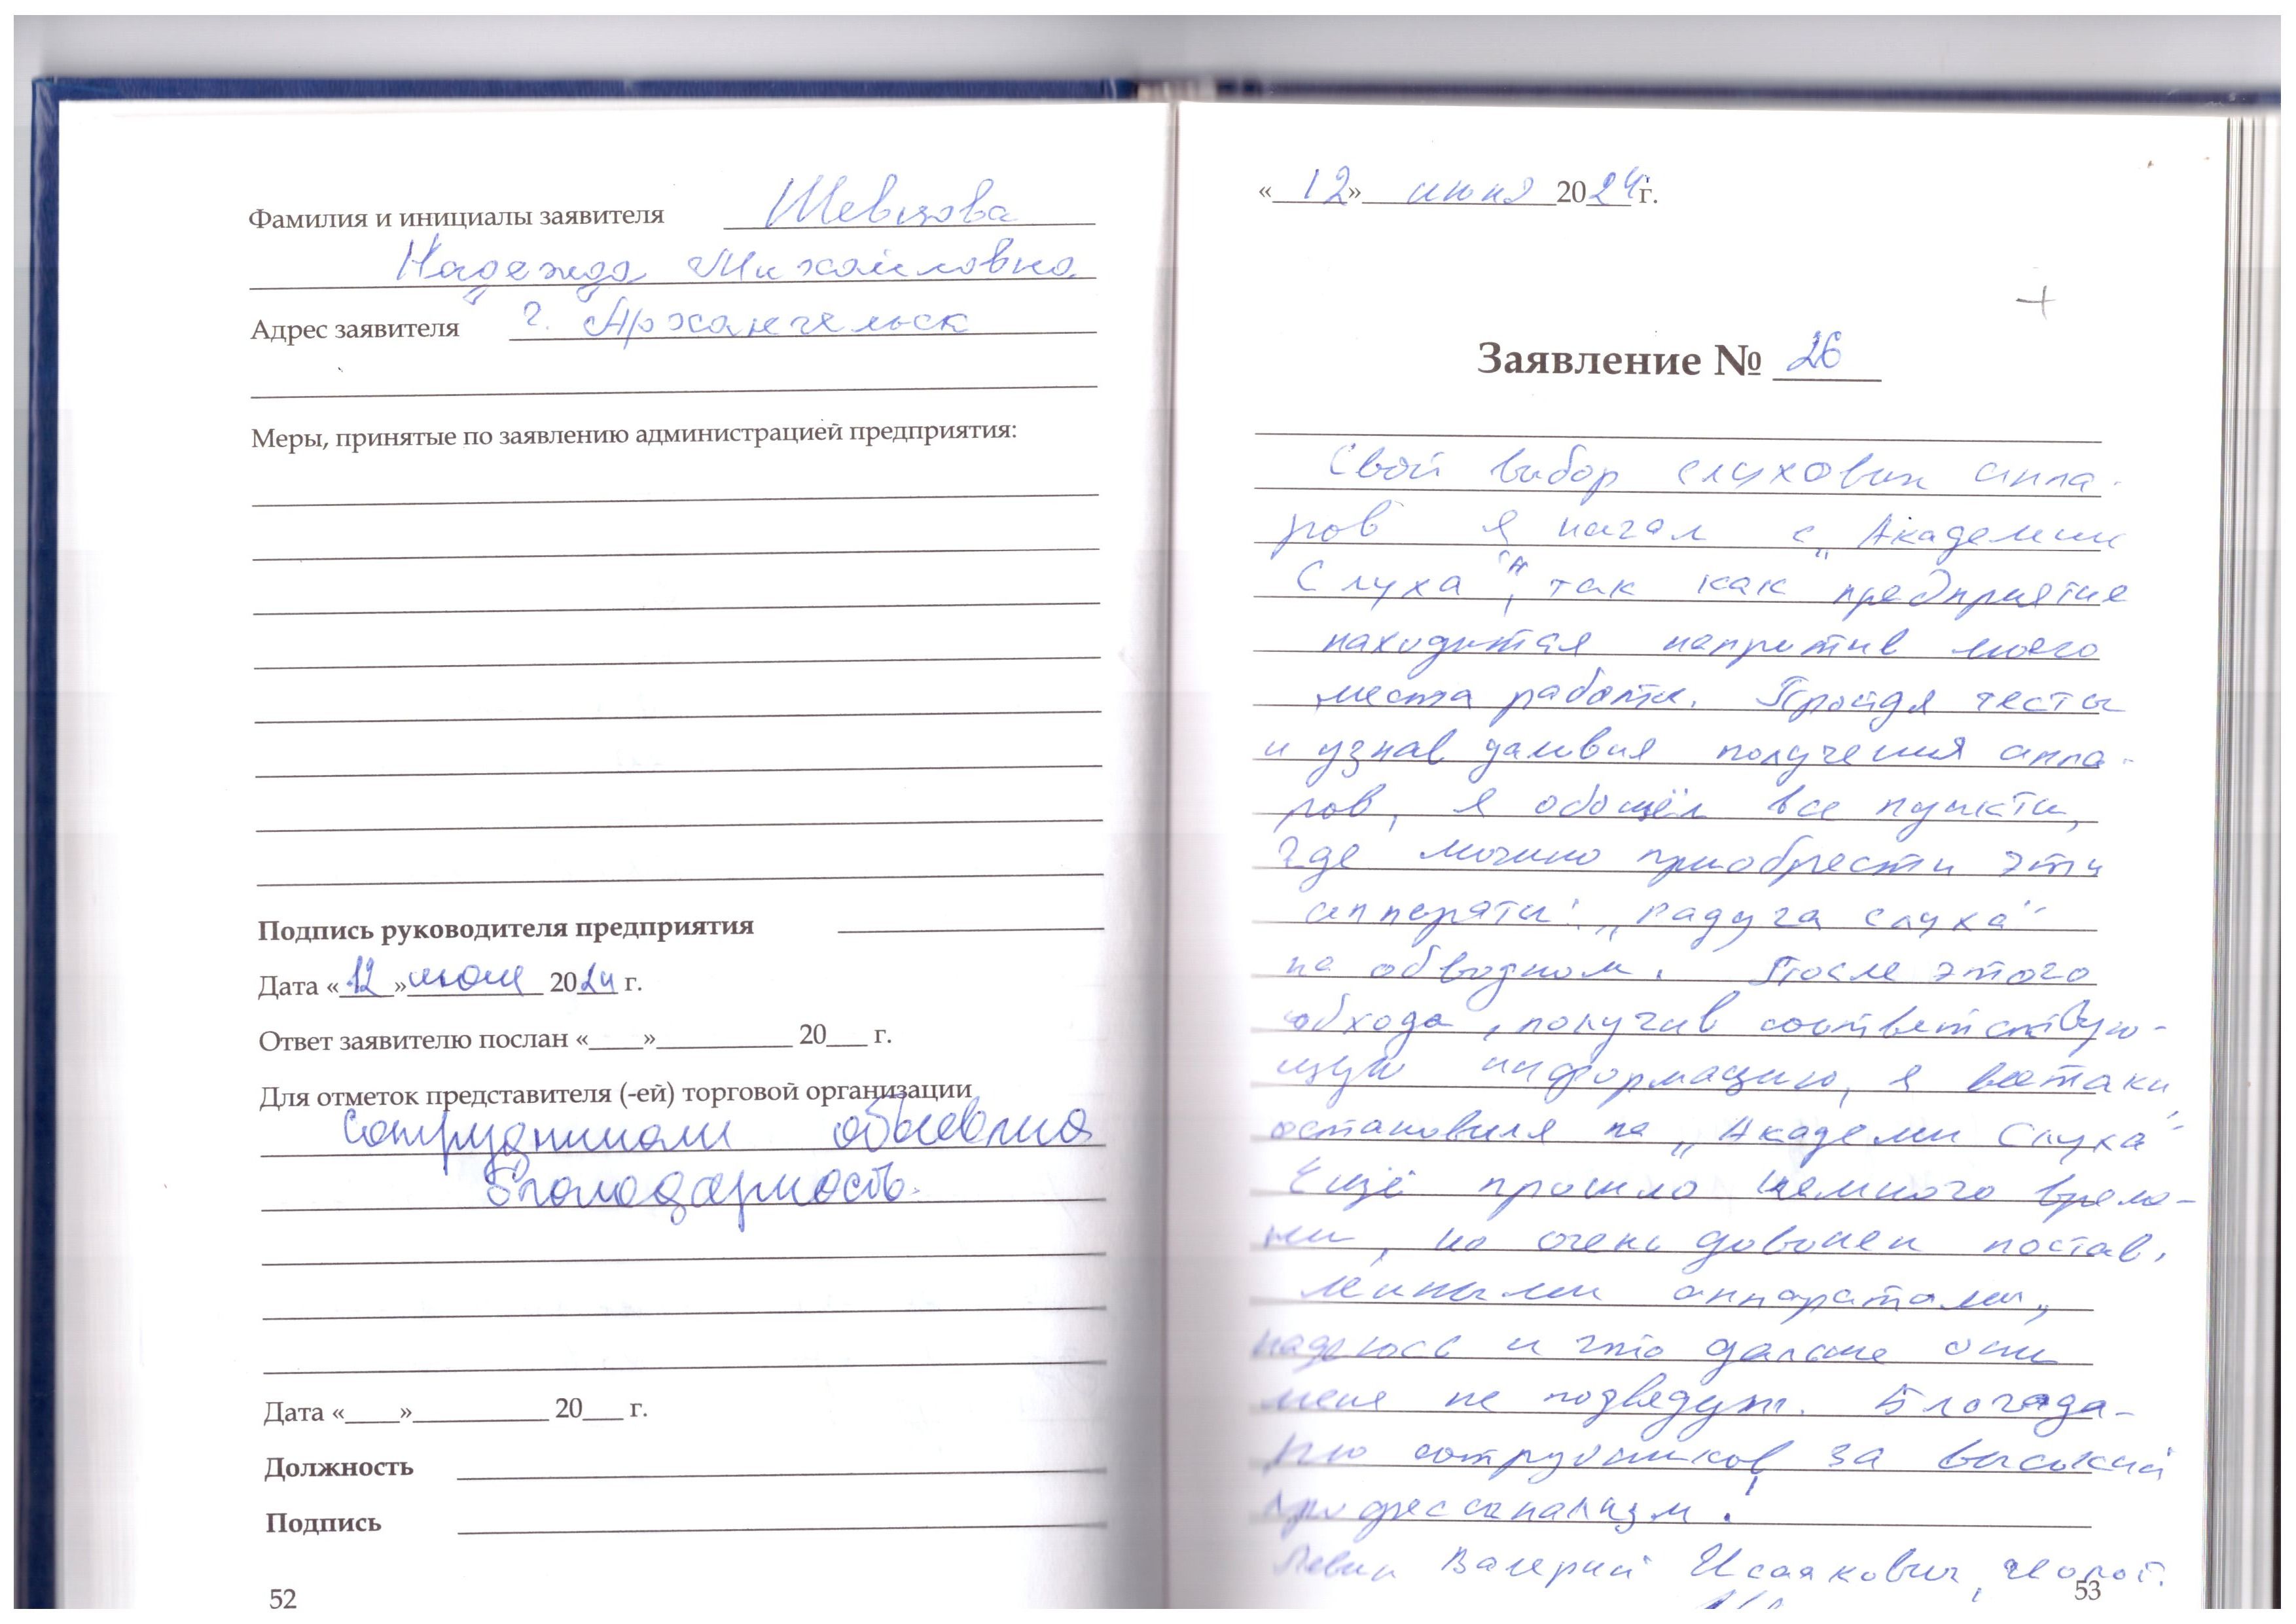 Фамилия и инициалы заявителя Шевцова
Надежда Михайловна
Адрес заявителя г. Архангельск
Меры, принятые по заявлению администрацией предприятия:
Подпись руководителя предприятия
Дата «12» июня 2024 г.
Ответ заявителю послан «____»__________ 20___ г.
Для отметок представителя (-ей) торговой организации
Сотрудникам объявлена
благодарность.
Дата «____»__________ 20___ г.
Должность
Подпись
52
«12» июня 2024 г.
+
Заявление № 26
Свой выбор слуховых аппа-
ров я начал с „Академии
Слуха", так как предприятие
находится напротив моего
места работы. Пройдя тесты
и узнав условия получения аппа-
ров, я обошёл все пункты,
где можно приобрести эти
аппараты: „Радуга слуха"
на обводном. После этого
обхода, получив соответствую-
щую информацию, я всетаки
остановился на „Академи Слуха"
Ещё прошло немного време-
ни, но очень доволен постав.
леными аппаратами,
надеюсь и что дальше они
меня не подведут. Благода-
рю сотрудников за высокий
профессионализм!
Левин Валерий Исаакович,
53